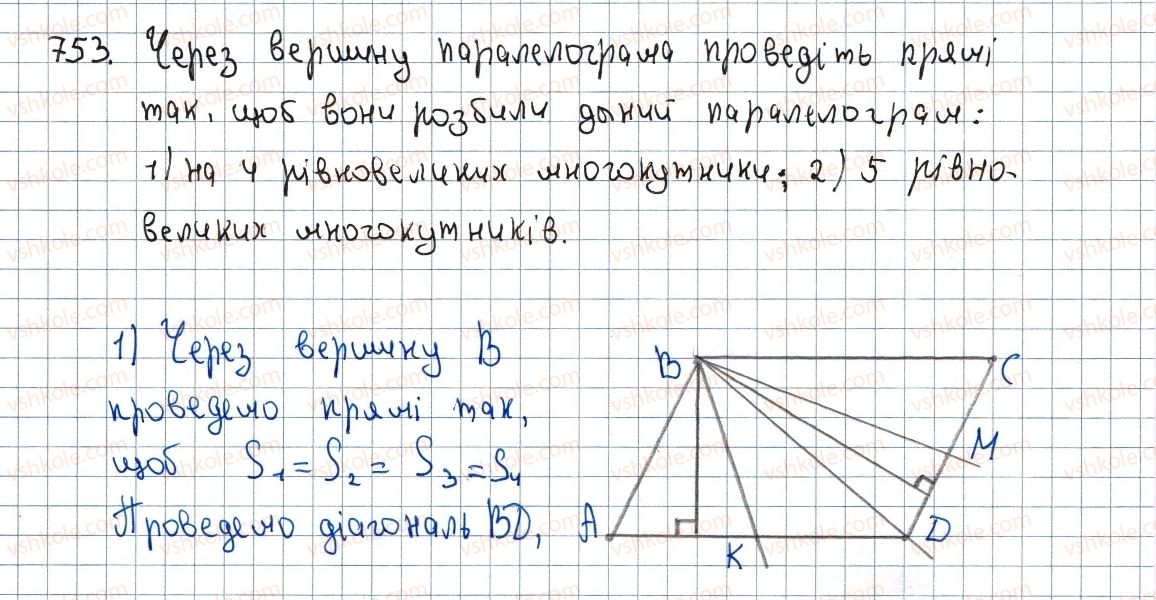 753. Через вершину паралелограма проведіть прямі
так, щоб вони розбили даний паралелограм:
1) на 4 рівновеликих многокутники; 2) 5 рівно-
великих многокутників.
1) Через вершину B
проведемо прямі так,
щоб S₁ = S₂ = S₃ = S₄
Проведемо діагональ BD,
B C
M
A K D